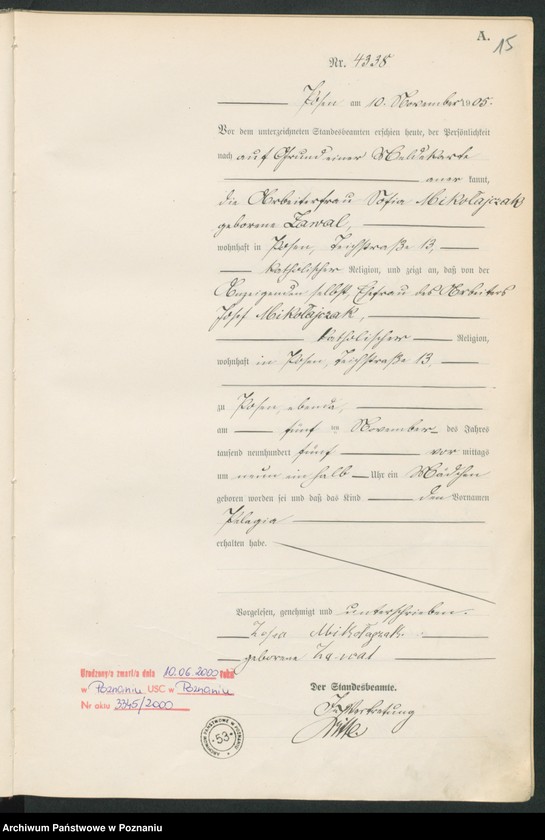 A.
15
Nr. 4338
Posen am 10. November 1905.
Vor dem unterzeichneten Standesbeamten erschien heute, der Persönlichkeit
nach auf Grund einer Meldekarte
aner kannt,
die Arbeiterfrau Sofia Mikołajczak
geborene Zawal,
wohnhaft in Posen, Teichstraße 13,
katholischer Religion, und zeigt an, daß von der
Anzeigenden selbst, Ehefrau des Arbeiters
Josef Mikołajczak,
katholischer Religion,
wohnhaft in Posen, Teichstraße 13,
zu Posen, ebenda,
am fünften November des Jahres
tausend neunhundert fünf vor mittags
um neun einhalb Uhr ein Mädchen
geboren worden sei und daß das Kind den Vornamen
Pelagia
erhalten habe.
Vorgelesen, genehmigt und unterschrieben.
Zofia Mikołajczak
geborene Zawal
Der Standesbeamte.
In Vertretung
Urodzony/a zmarł/a dnia 10.06.2000 roku
w Poznaniu USC w Poznaniu
Nr aktu 3345/2000
ARCHIWUM PAŃSTWOWE W POZNANIU
53
Archiwum Państwowe w Poznaniu